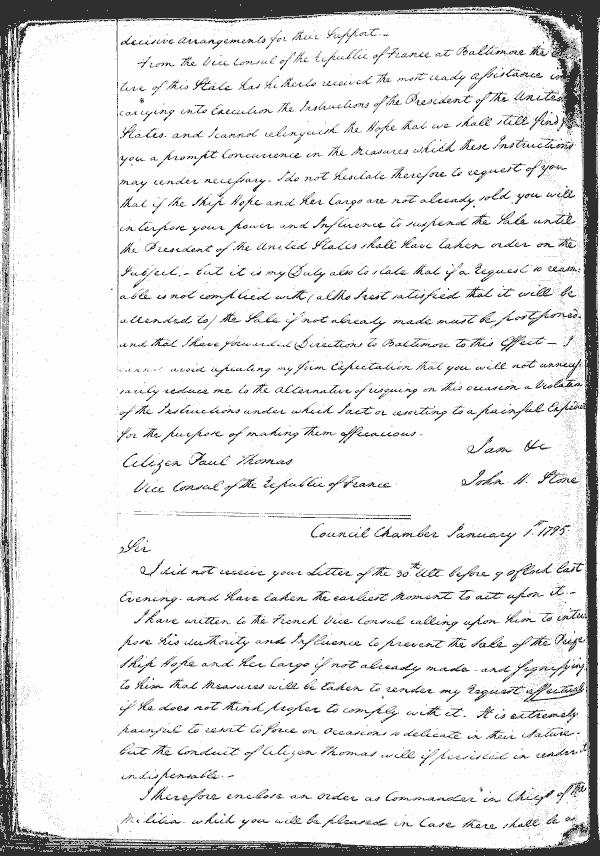 decisive arrangements for their Support.—
From the Vice Consul of the Republic of France at Baltimore the
tive of this State has hitherto received the most ready assistance in
carrying into Execution the Instructions of the President of the United
States. and I cannot relinquish the Hope that we shall still find
you a prompt Concurrence in the Measures which these Instructions
may render necessary. I do not hesitate therefore to request of you
that if the Ship Hope and Her Cargo are not already sold you will
interpose your power and Influence to suspend the Sale until
the President of the United States shall have taken order on the
Subject.— but it is my Duty also to state that if a Request so reason
able is not complied with, (altho I rest satisfied that it will be
attended to) the Sale if not already made must be postponed.
and that I have forwarded Directions to Baltimore to this Effect — I
cannot avoid repeating my firm Expectation that you will not unneces
sarily reduce me to the Alternative of resquing on this occasion a Violation
of the Instructions under which I act or resorting to a painful Expedi
for the purpose of making them efficacious.
I am &c
Citizen Paul Thomas
Vice Consul of the Republic of France
John H. Stone
Council Chamber January 1st. 1795
Sir
I did not receive your Letter of the 30th Ulto before 9 oClock last
Evening. and have taken the earliest Moment to act upon it.—
I have written to the French Vice Consul calling upon Him to inter
pose his Authority and Influence to prevent the Sale of the Prize
Ship Hope and Her Cargo if not already made. and signifying
to him that Measures will be taken to render my Request effectual
if He does not think proper to comply with it. It is extremely
painful to resort to force on Occasions so delicate in their Nature.
but the Conduct of Citizen Thomas will if persisted in render it
indispensable.—
I therefore enclose an order as Commander in Chief of the
Militia. which you will be pleased in Case there shall be a